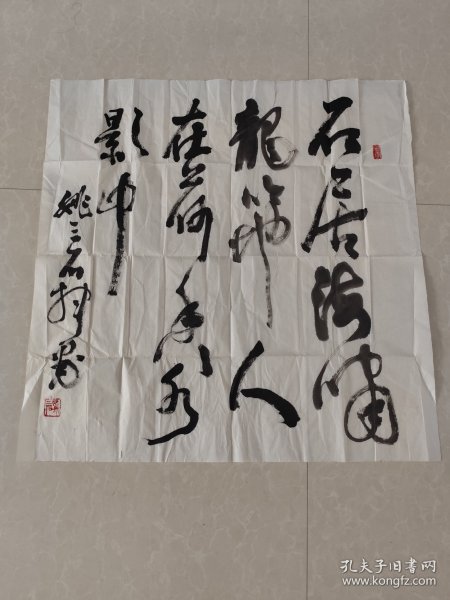 石居海嘯
龍吟人
在荷香水
影中
姚三石
孔夫子旧书网
www.kongfz.com